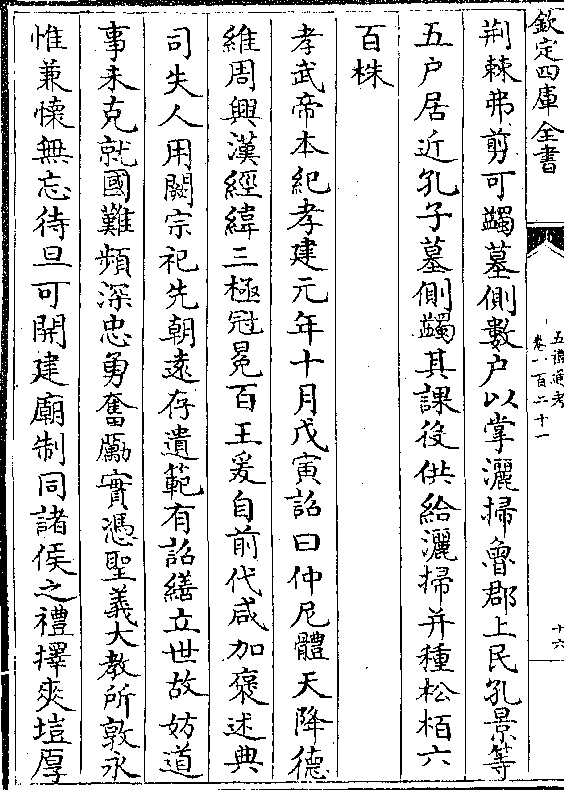 欽定四庫全書
五禮通考
卷一百二十一
十六
荆棘弗剪可蠲墓側數户以掌灑掃魯郡上民孔景等
五户居近孔子墓側蠲其課役供給灑掃并種松栢六
百株
孝武帝本紀孝建元年十月戊寅詔曰仲尼體天降德
維周興漢經緯三極冠冕百王爰自前代咸加褒述典
司失人用闕宗祀先朝逺存遺範有詔繕立世故妨道
事未克就國難頻深忠勇奮厲實憑聖義大教所敦永
惟兼懷無忘待旦可開建廟制同諸侯之禮擇爽塏厚